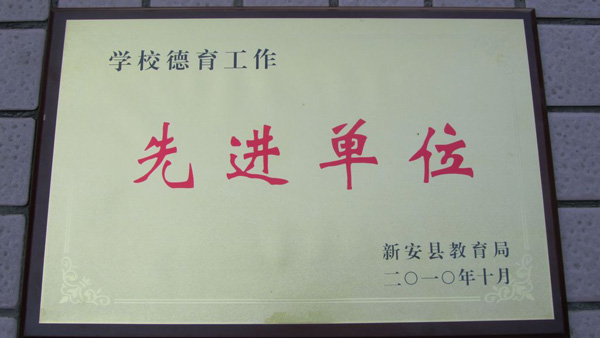 学校德育工作
先进单位
新安县教育局
二〇一〇年十月